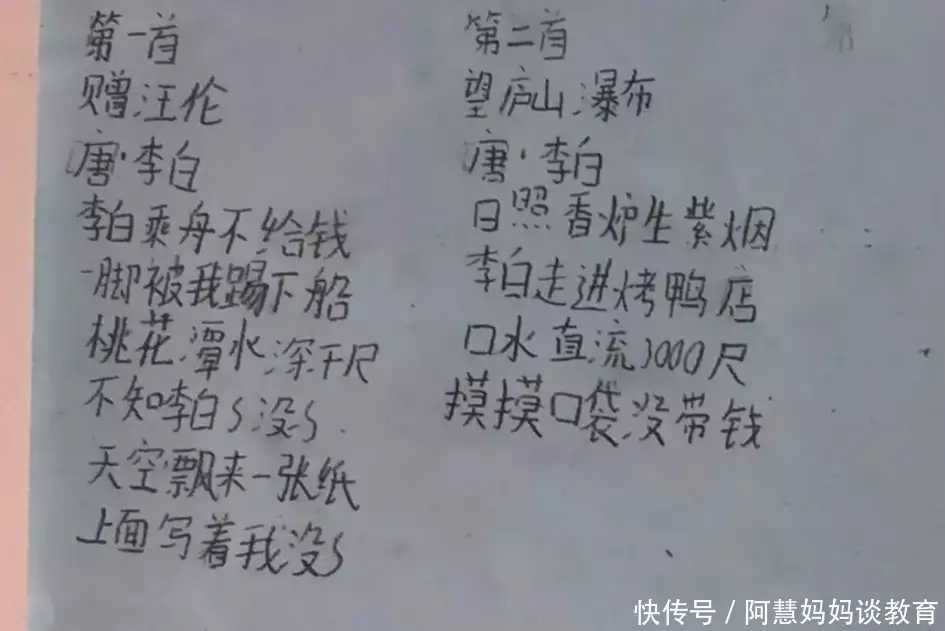 第一首
赠汪伦
唐·李白
李白乘舟不给钱
一脚被我踢下船
桃花潭水深千尺
不知李白S没S
天空飘来一张纸
上面写着我没S
第二首
望庐山瀑布
唐·李白
日照香炉生紫烟
李白走进烤鸭店
口水直流3000尺
摸摸口袋没带钱
快传号/阿慧妈妈谈教育